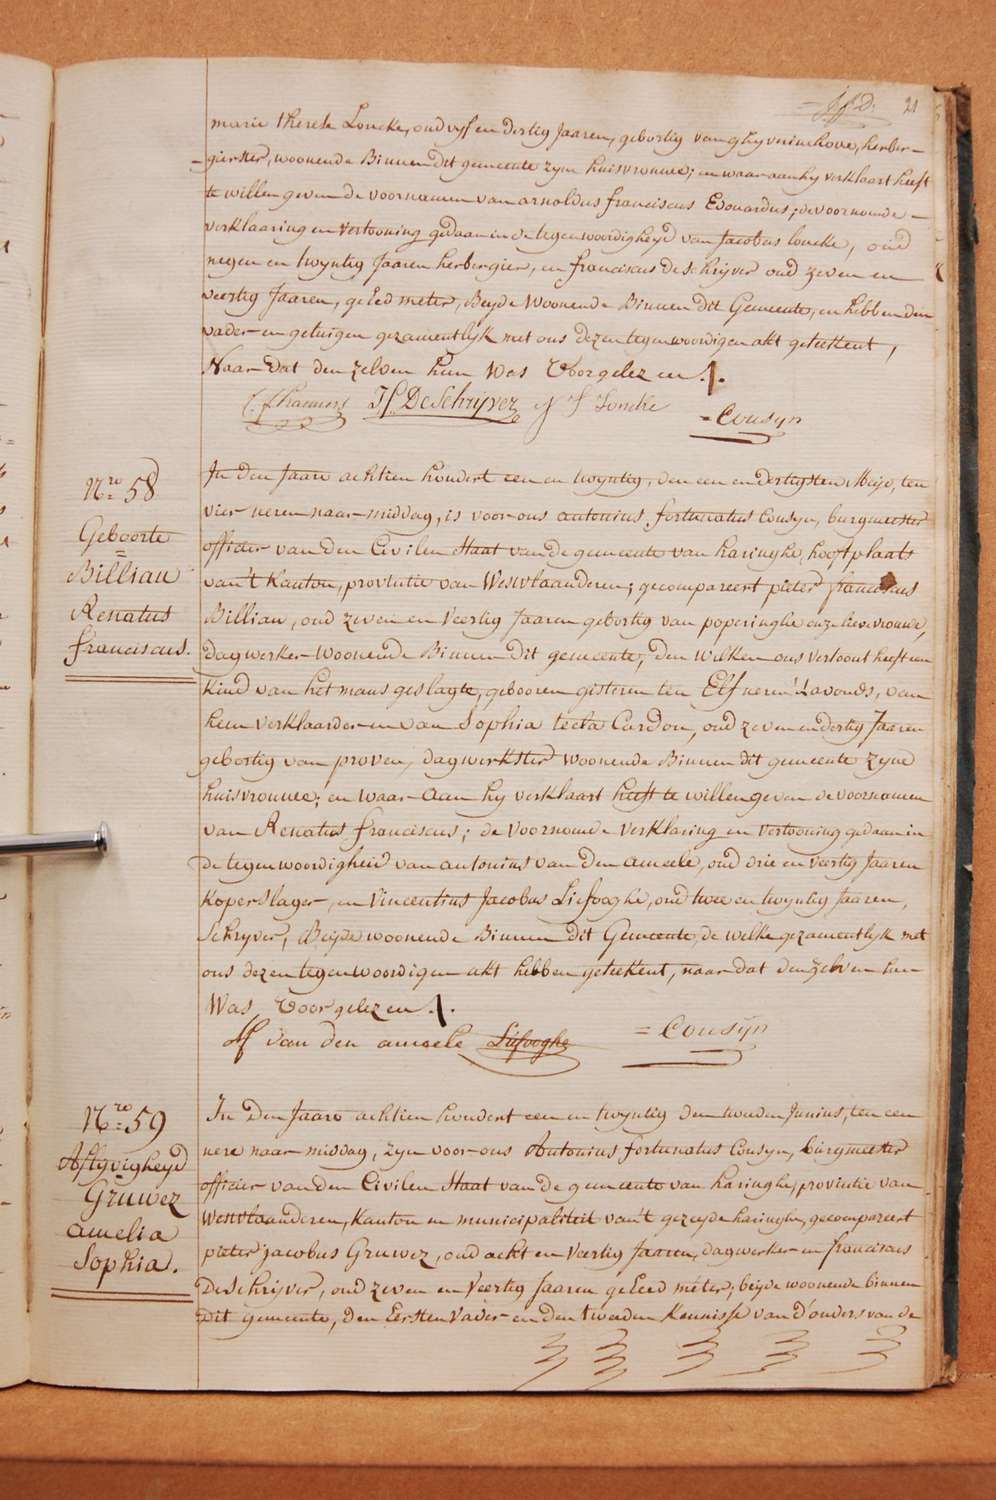 21
marie therese Loncke, oud vyf en dertig Jaaren, gebortig van ghyverinchove, herber-
gierster, woonende Binnen dit gemeente zyne huisvrouwe; en waar aan hy verklaart heeft
te willen geven de voornamen van arnoldus franciscus Edouardus; de voornoemde
verklaaring en vertooning gedaan in de tegenwoordigheyd van Jacobus loncke, oud
negen en twyntig Jaaren herbergier, en franciscus De Schryver oud zeven en
veertig Jaaren, geleed meter, Beyde Woonende Binnen dit Gemeente, en hebben den
vader en getuigen gezamentlyk met ons dezen tegenwoordigen akt geteekent,
Naar dat den zelven hun Was Voorgelezen ./.
De Schryver J Loncke = Cousyn
Nro 58
Geboorte
=
Billiau
Renatus
franciscus.
In den Jaare achtien hondert een en twyntig, den een en dertigsten Meije, ten
vier uren naar middag, is voor ons antonius fortunatus Cousyn, burgmeester
officier van den Civilen Staat van de gemeente van haringhe, hooftplaats
van't Kanton, provintie van Westvlaanderen; gecompareert pieter franciscus
Billiau, oud zeven en Veertig Jaaren gebortig van poperinghe onze lieve vrouwe,
dagwerker woonende Binnen dit gemeente, den Welken ons vertoont heeft een
Kind van het mans geslagte, gebooren gisteren ten Elf uren 's avonds, van
hem verklaarder en van Sophia tecla Cardon, oud zeven en dertig Jaaren
gebortig van proven, dagwerkster woonende Binnen dit gemeente zyne
huisvrouwe; en waar aan hy verklaart heeft te willen geven de voornamen
van Renatus franciscus; de voornoemde verklaring en vertooning gedaan in
de tegenwoordigheid van antonius van den ameele, oud drie en veertig Jaaren
Koperslager, en Vincentius Jacobus Liefooghe, oud twee en twyntig Jaaren,
Schryver, Beyde woonende Binnen dit Gemeente, de welke gezamentlyk met
ons dezen tegenwoordigen akt hebben geteekent, naar dat den zelven hun
Was Voorgelezen ./.
Af van den ameele Liefooghe = Cousyn
Nro 59
Aflyvigheyd
Gruwez
amelia
Sophia.
In Den Jaare achtien hondert een en twyntig den tweeden Junius, ten een
uere naar middag, zyn voor ons Antonius fortunatus Cousyn, burgmeester
officier van den Civilen Staat van de gemeente van haringhe, provintie van
Westvlaanderen, Kanton en municipaliteit van't gezeyde haringhe, gecompareert
pieter jacobus Gruwez, oud acht en Veertig Jaaren, dagwerker en franciscus
De Schrijver, oud zeven en Veertig Jaaren geleed meter; beyde woonende binnen
dit gemeente, den Eersten Vader en den tweeden Kennisse van d'ouders van de